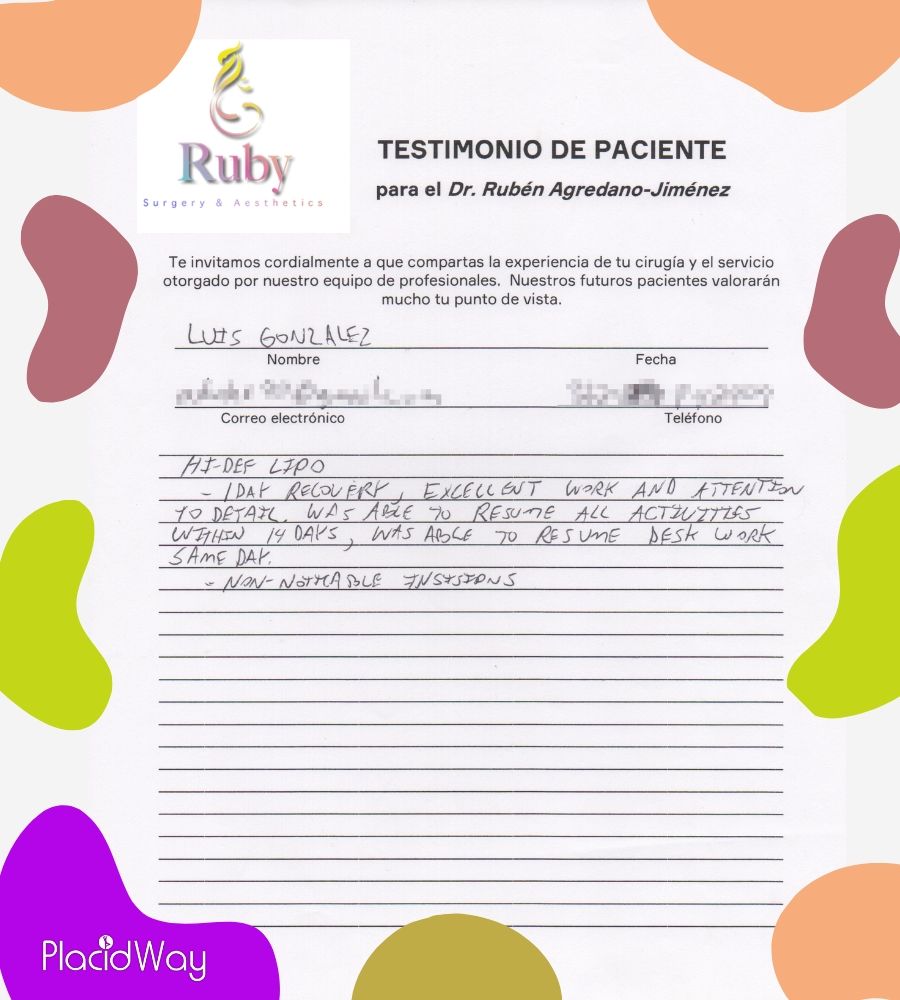 Ruby
Surgery & Aesthetics
TESTIMONIO DE PACIENTE
para el Dr. Rubén Agredano-Jiménez
Te invitamos cordialmente a que compartas la experiencia de tu cirugía y el servicio
otorgado por nuestro equipo de profesionales. Nuestros futuros pacientes valorarán
mucho tu punto de vista.
LUIS GONZALEZ
Nombre Fecha
Correo electrónico Teléfono
HI-DEF LIPO
- 1 DAY RECOVERY, EXCELLENT WORK AND ATTENTION
TO DETAIL. WAS ABLE TO RESUME ALL ACTIVITIES
WITHIN 14 DAYS, WAS ABLE TO RESUME DESK WORK
SAME DAY.
- INSISIONS
PlacidWay